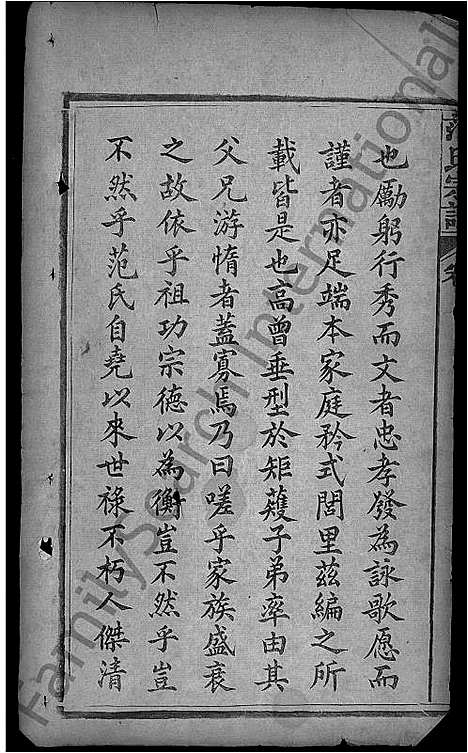 也勵躬行秀而文者忠孝發為詠歌愿而
謹者亦足端本家庭矜式閭里茲編之所
載皆是也高曾垂型於矩矱子弟率由其
父兄游惰者蓋寡焉乃曰嗟乎家族盛衰
之故依乎祖功宗德以為衡豈不然乎豈
不然乎范氏自堯以來世祿不朽人傑清
范氏宗譜
卷
FamilySearch International